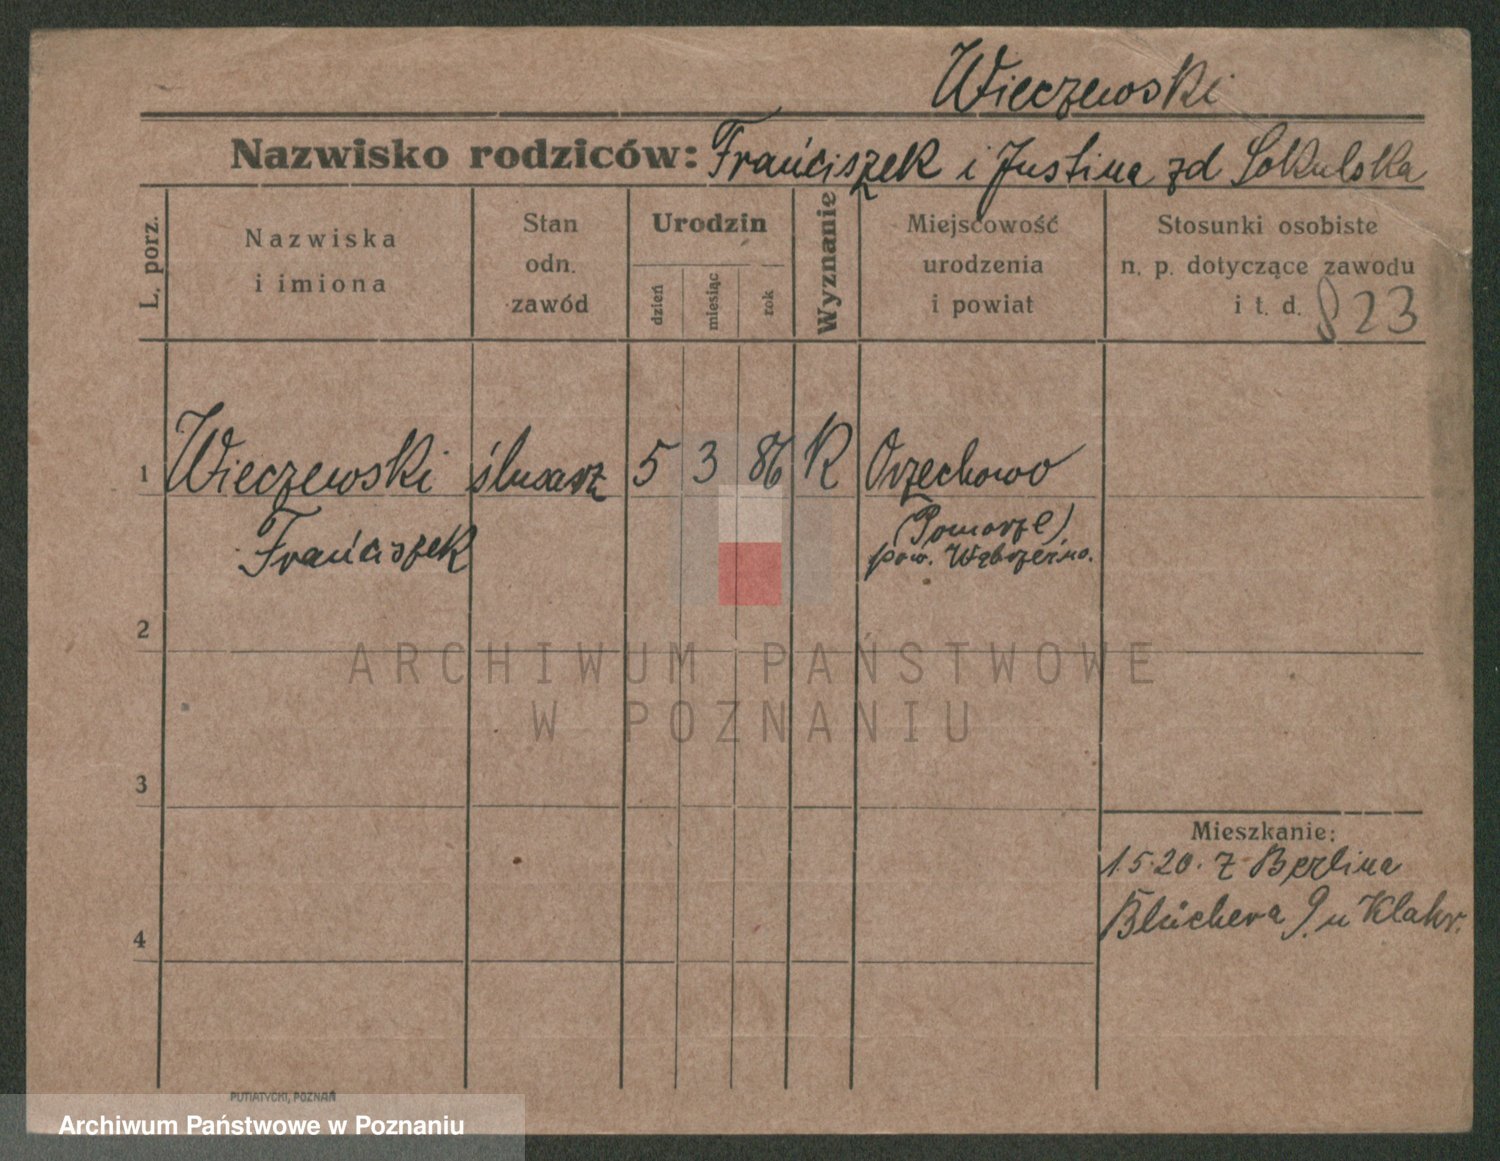 Wieczewski
Nazwisko rodziców: Franciszek i Justina zd Sokulska
L. porz.
Nazwiska i imiona
Stan odn. zawód
Urodzin
dzień
miesiąc
rok
Wyznanie
Miejscowość urodzenia i powiat
Stosunki osobiste n. p. dotyczące zawodu i t. d.
823
1 Wieczewski ślusarz 5 3 86 R Orzechowo
Franciszek (Pomorze)
pow. Wąbrzeźno.
2
ARCHIWUM PAŃSTWOWE
W POZNANIU
3
Mieszkanie:
1.5.20. z Berlina
Blüchera 9. u Klahr.
4
PUTIATYCKI, POZNAŃ
Archiwum Państwowe w Poznaniu